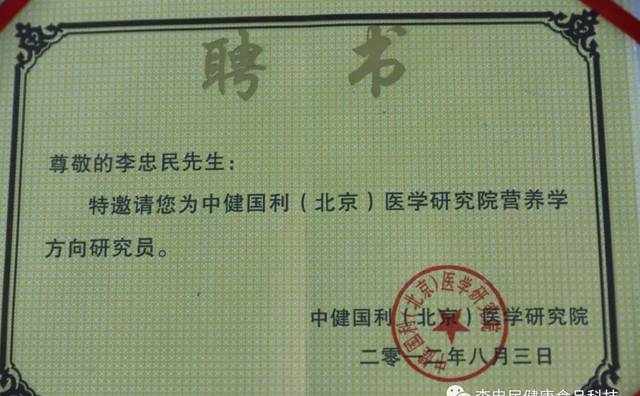 聘 书
尊敬的李忠民先生：
特邀请您为中健国利（北京）医学研究院营养学
方向研究员。
中健国利（北京）医学研究院
二零一二年八月三日
中健国利（北京）医学研究院
李忠民健康食品科技